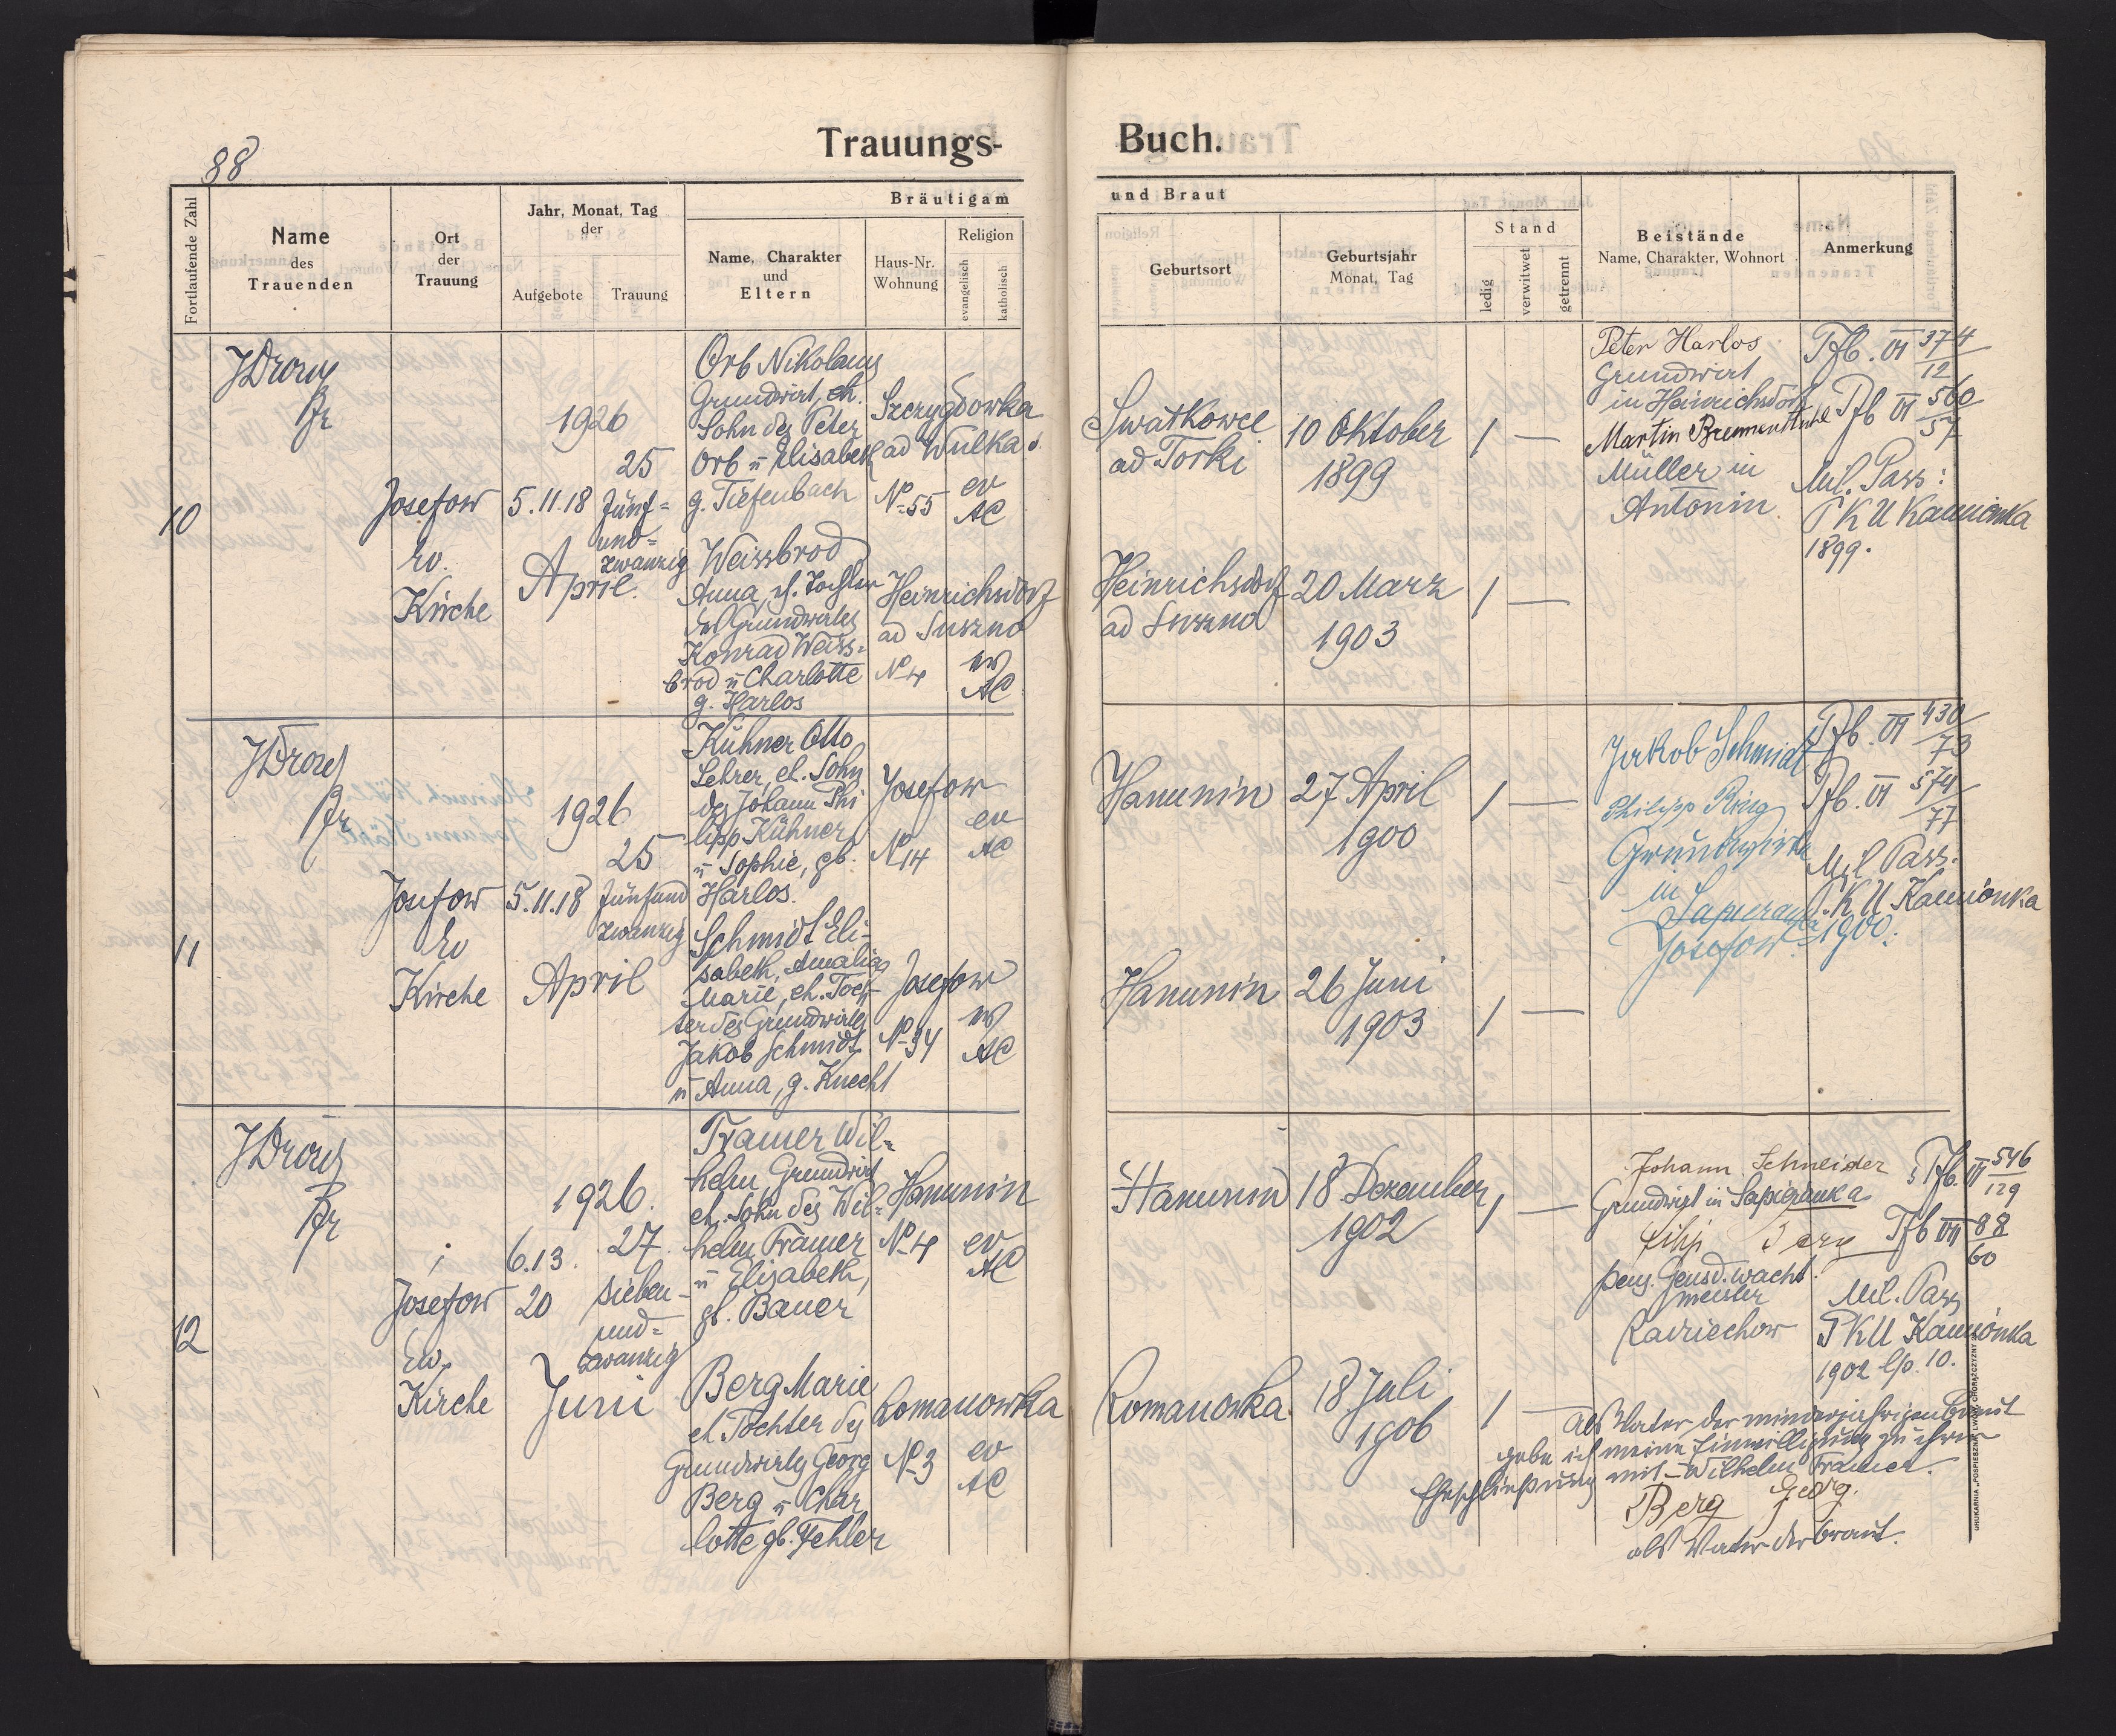 88
Trauungs-
Buch.
Fortlaufende Zahl
Name
des
Trauenden
Ort
der
Trauung
Jahr, Monat, Tag
der
Aufgebote
Trauung
Bräutigam
Name, Charakter
und
Eltern
Haus-Nr.
Wohnung
Religion
evangelisch
katholisch
und Braut
Geburtsort
Geburtsjahr
Monat, Tag
Stand
ledig
verwitwet
getrennt
Beistände
Name, Charakter, Wohnort
Anmerkung
10
Pfr
Josefow
ev.
Kirche
1926
5.11.18
25
Fünf=
und=
zwanzig
April.
Orb Nikolaus
Grundwirt, eh.
Sohn des Peter
Orb u Elisabeth
g. Tiefenbach
Szczygdowka
ad Wulka
No 55
ev
AC
Weissbrod
Anna, eh. Tochter
des Grundwirtes
Konrad Weiss=
brod u Charlotte
g. Harlos
Heinrichsdorf
ad Suszno
No 4
ev
AC
Swatkowce
ad Torki
10 Oktober
1899
1 —
Heinrichsdorf
ad Suszno
20 März
1903
1 —
Peter Harlos
Grundwirt
in Heinrichsdorf
Martin Brennenstuhl
Müller in
Antonin.
Tfb. VI 374/12
Tfb VI 560/57
Mil. Pass:
PKU Kamionka
1899.
11
Pfr
Josefow
Ev
Kirche
1926
5.11.18
25
Fünfund
zwanzig
April
Kühner Otto
Lehrer, eh. Sohn
des Johann Phi
lipp Kühner
u Sophie, gb.
Harlos.
Josefow
No 14
ev
AC
Schmidt Eli-
sabeth, Amalia
Marie, eh. Toch-
ter des Grundwirtes
Jakob Schmidt
u Anna, g. Knecht
Josefow
No 34
ev
AC
Hanunin
27 April
1900
1 —
Hanunin
26 Juni
1903
1 —
Jakob Schmidt
Philipp Ring
Grundwirte
in
Josefow.
Tfb. VI 430/73
Tfb. VI 574/77
Mil Pass.
P.K.U. Kamionka
1900.
12
Pfr
Josefow
Ev.
Kirche
1926.
6.13.
20
27.
Sieben-
und=
zwanzig
Juni
Tramer Wil=
helm, Grundwirt
eh. Sohn des Wil=
helm Tramer
u Elisabeth,
gb. Bauer
Hanunin
No 4
ev
AC
Berg Marie
eh. Tochter des
Grundwirtes Georg
Berg u Char
lotte gb. Fehler
Romanowka
No 3
ev
AC
Hanunin
18 Dezember
1902
1 —
Romanowka
18 Juli
1906
1 —
Johann Schneider
Grundwirt in Sapiezanka
pens. Gensd. wacht
meister
Radziechow
Tfb. VI 546/129
Tfb VII 88/60
Mil. Pass
PKU Kamionka
1902
Als Vater der minderjährigen Braut
gebe ich meine Einwilligung zu ihrer
Eheschließung mit Wilhelm Tramer.
Berg Georg.
als Vater der Braut.